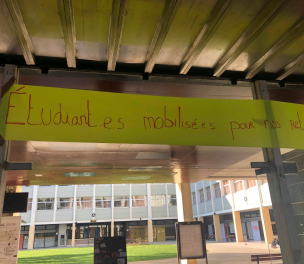 Étudiant.es mobilisé.es pour nos ret